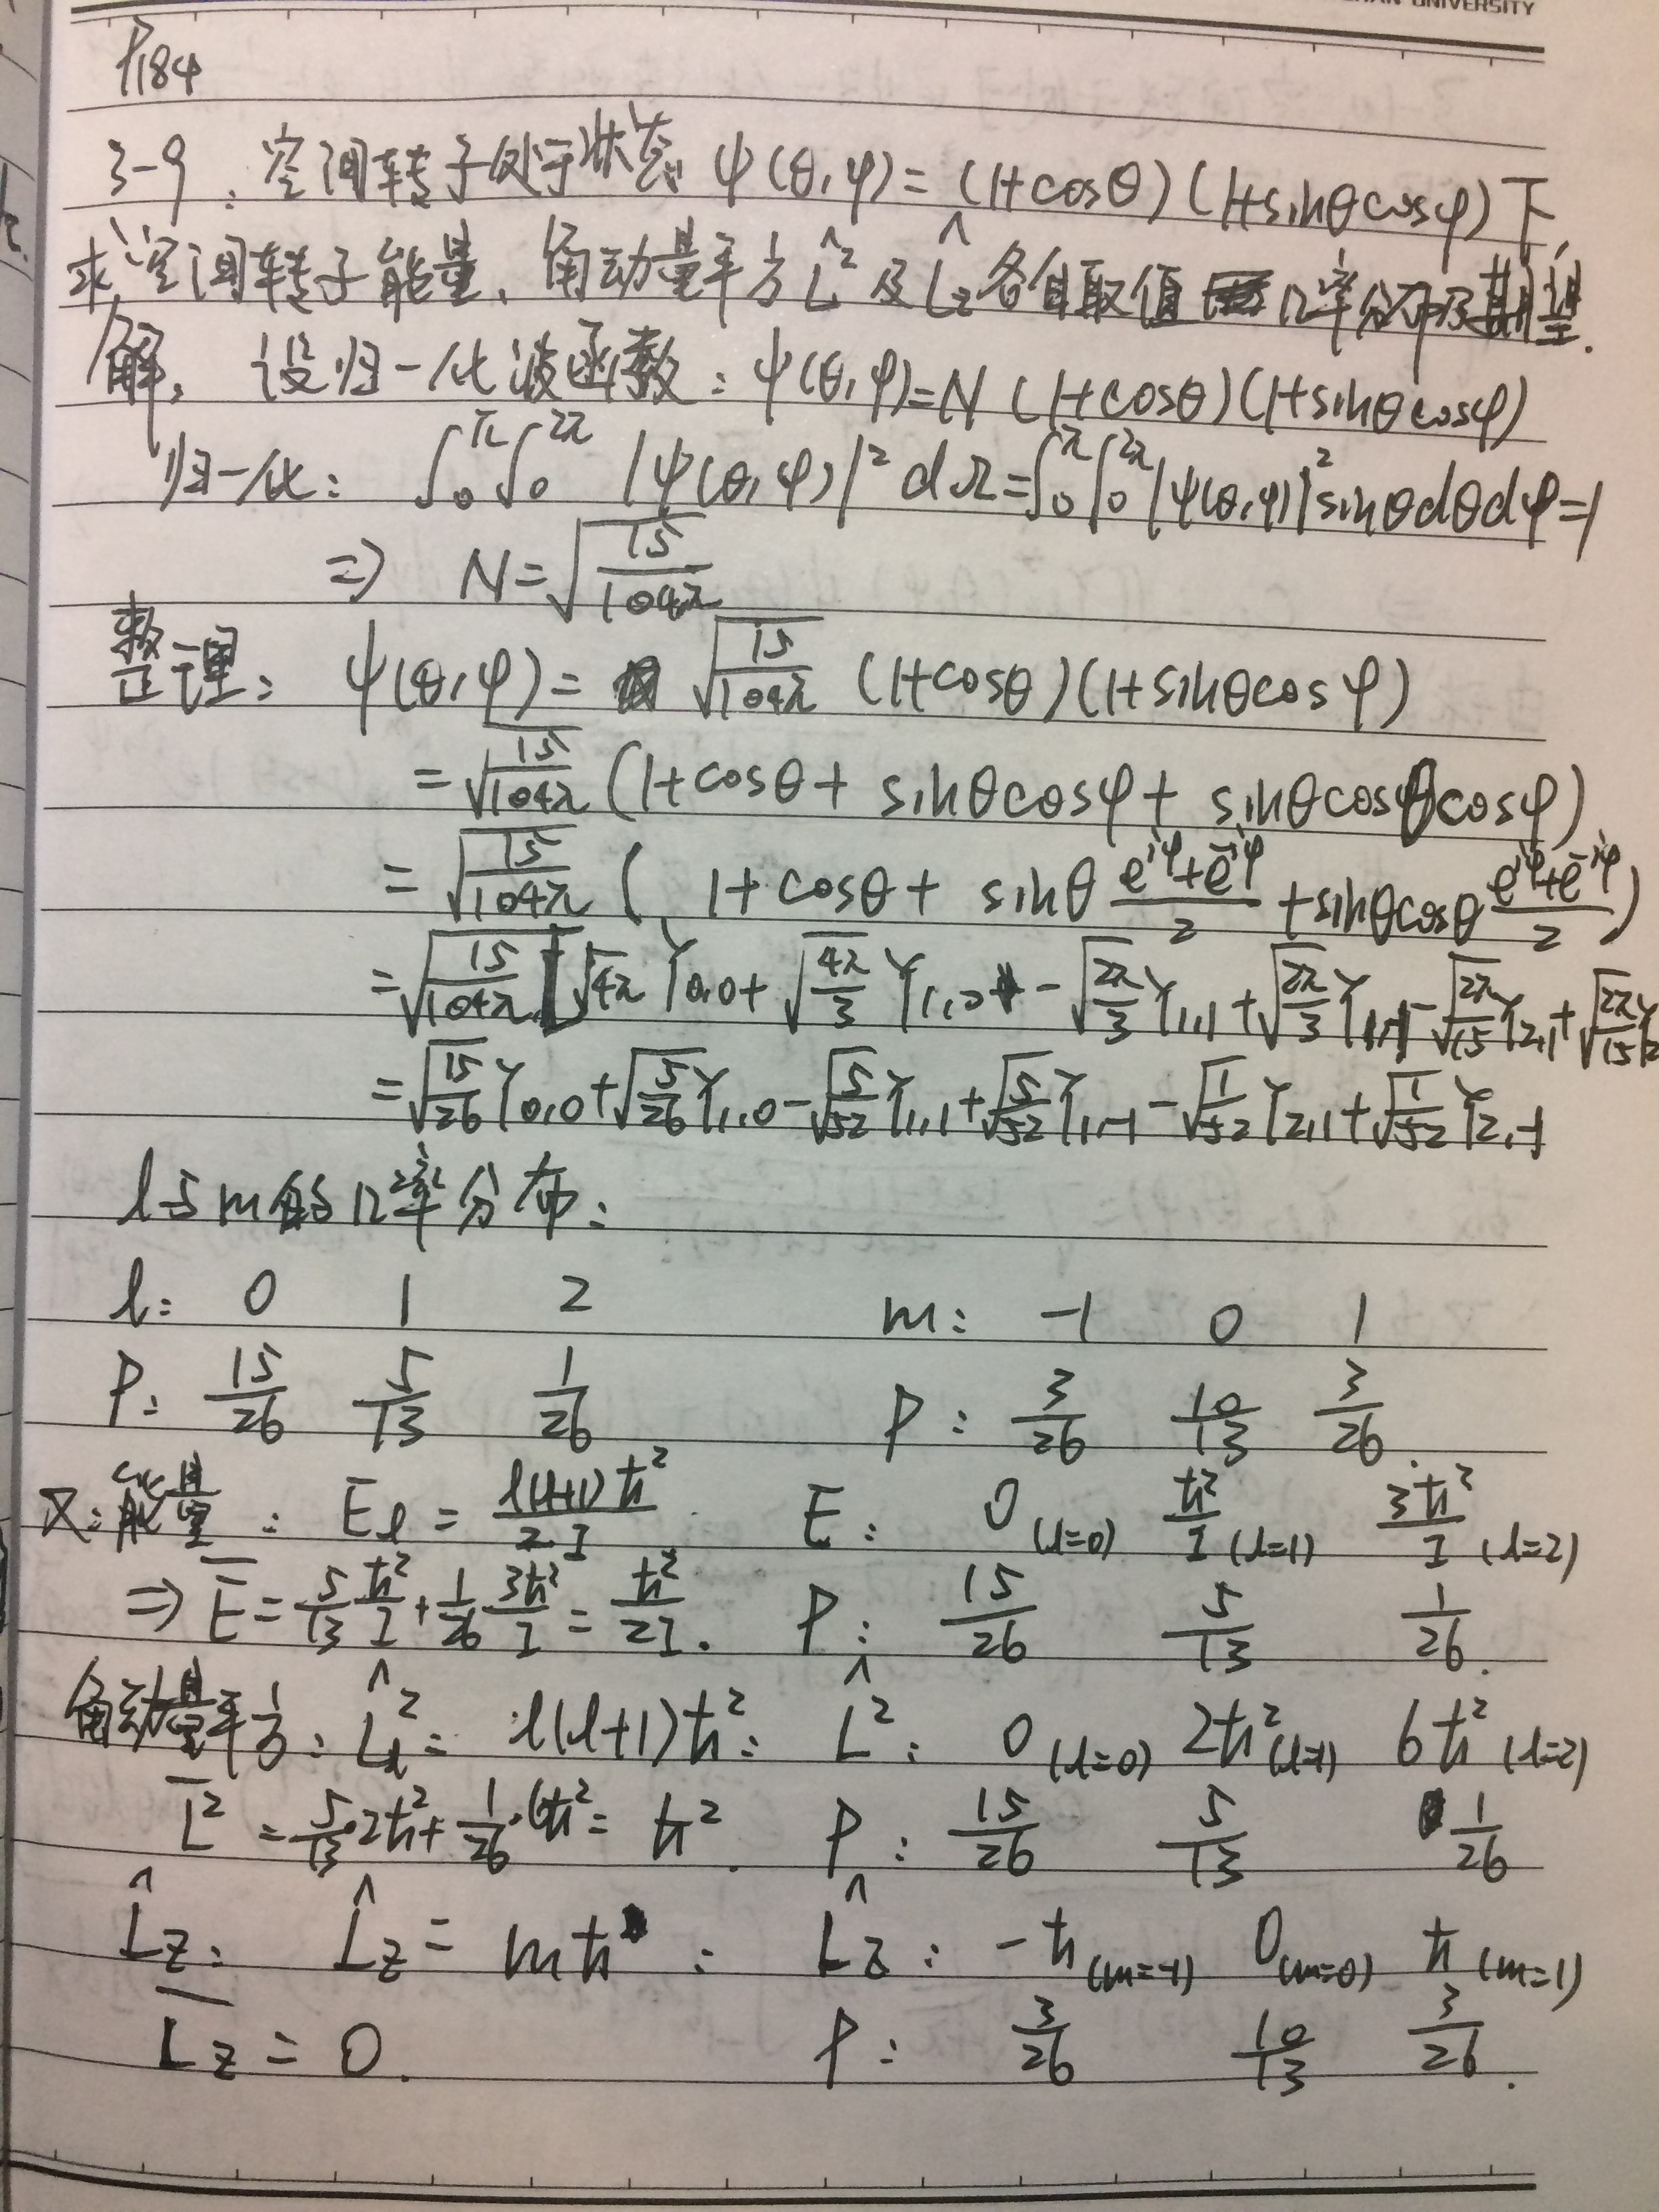 UNIVERSITY
P184
3-9. 空间转子处于状态 ψ(θ,φ)=(1+cosθ)(1+sinθcosφ)下,
求空间转子能量、角动量平方L̂²及L̂z各自取值几率分布及期望.
解: 设归一化波函数: ψ(θ,φ)=N(1+cosθ)(1+sinθcosφ)
归一化: ∫₀^π∫₀^2π |ψ(θ,φ)|²dΩ=∫₀^π∫₀^2π|ψ(θ,φ)|²sinθdθdφ=1
⇒ N=√(15/104π)
整理: ψ(θ,φ)= √(15/104π) (1+cosθ)(1+sinθcosφ)
=√(15/104π) (1+cosθ+ sinθcosφ+ sinθcosθcosφ)
=√(15/104π) (1+cosθ+ sinθ (e^iφ+e^-iφ)/2 +sinθcosθ (e^iφ+e^-iφ)/2)
=√(15/104π) [√4π Y0,0+√(4π/3) Y1,0 -√(2π/3) Y1,1+√(2π/3) Y1,-1-√(2π/15) Y2,1+√(2π/15) Y2
=√(15/26) Y0,0+√(5/26) Y1,0-√(5/52) Y1,1+√(5/52) Y1,-1-√(1/52) Y2,1+√(1/52) Y2,-1
l与m的几率分布:
l: 0 1 2 m: -1 0 1
P: 15/26 5/13 1/26 P: 3/26 10/13 3/26.
又: 能量: El = l(l+1)ħ²/2I E: 0(l=0) ħ²/I (l=1) 3ħ²/I (l=2)
⇒ E̅= 5/13 ħ²/I + 1/26 3ħ²/I = ħ²/2I. P: 15/26 5/13 1/26.
角动量平方: L̂l²= l(l+1)ħ²: L̂²: 0(l=0) 2ħ²(l=1) 6ħ²(l=2)
L̅²= 5/13·2ħ²+ 1/26·6ħ²= ħ². P: 15/26 5/13 1/26
L̂z: L̂z= mħ: L̂z: -ħ(m=-1) 0(m=0) ħ(m=1)
L̅z=0. P: 3/26 10/13 3/26.